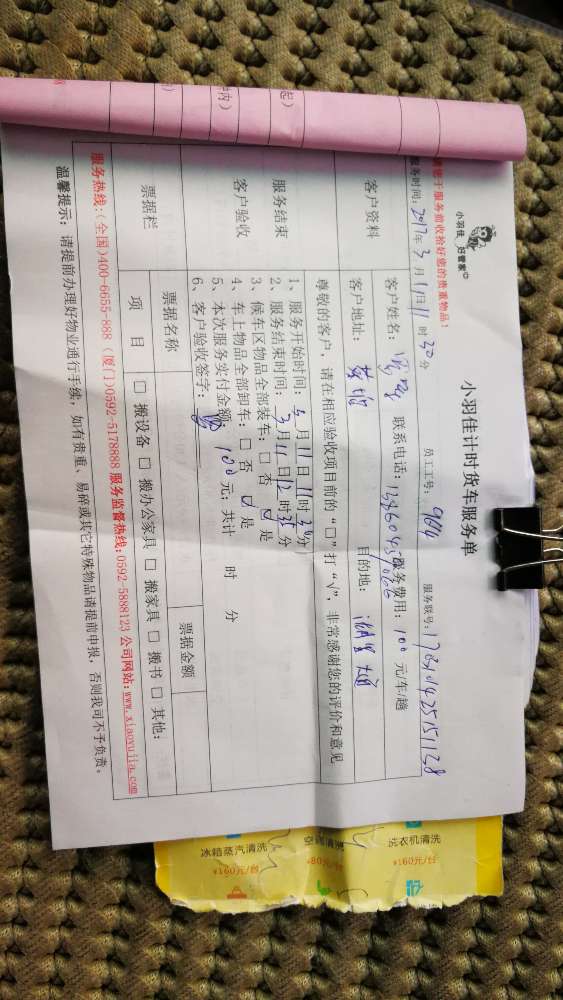 起)
钟内)
小羽佳 好管家
小羽佳计时货车服务单
于服务前收拾好您的贵重物品!
员工工号: 964
服务联号:
服务时间: 2017年3月11日11时30分
客户资料
客户姓名:
联系电话:
服务费用: 100元/车/趟
客户地址:
目的地:
服务结束
客户验收
尊敬的客户，请在相应验收项目前的“□”打“√”，非常感谢您的评价和意见
1、服务开始时间: 3月11日11时30分
2、服务结束时间: 3月11日12时35分
3、候车区物品全部装车: □ 否 ☑ 是
4、车上物品全部卸车: □ 否 ☑ 是
5、本次服务实付金额: 100元; 共计 时 分
6、客户验收签字:
票据栏
票据名称
票据金额
项 目
□ 搬设备 □ 搬办公家具 □ 搬家具 □ 搬书 □ 其他:
服务热线:(全国)400-6655-888 (厦门)0592-5178888 服务监督热线:0592-5888123 公司网站:www.xiaoyujia.com
温馨提示: 请提前办理好物业通行手续，如有贵重、易碎或其它特殊物品请提前申报，否则我司不予负责。
洗衣机清洗
¥160元/台
¥80元/台
冰箱蒸汽清洗
¥160元/台